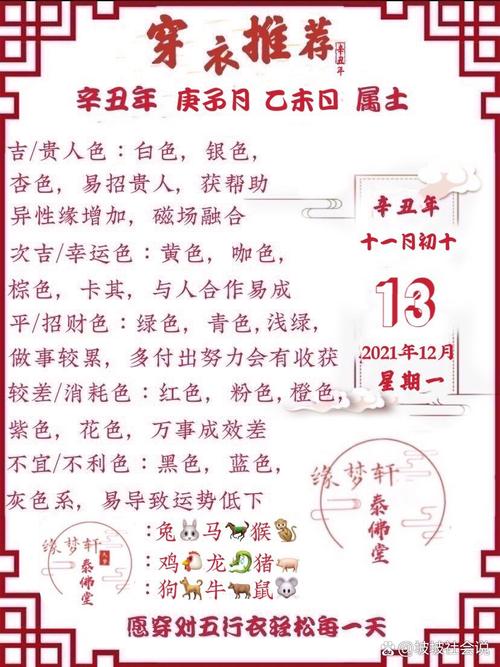 穿衣推荐
辛丑年
辛丑年 庚子月 乙未日 属土
吉/贵人色：白色，银色，
杏色，易招贵人，获帮助
异性缘增加，磁场融合
次吉/幸运色：黄色，咖色，
棕色，卡其，与人合作易成
平/招财色：绿色，青色,浅绿,
做事较累，多付出努力会有收获
较差/消耗色：红色，粉色,橙色,
紫色，花色，万事成效差
不宜/不利色：黑色，蓝色，
灰色系，易导致运势低下
辛丑年
十一月初十
13
2021年12月
星期一
缘梦轩
泰佛堂
缘梦轩
泰佛堂
:兔🐰马🐎猴🐒
:鸡🐔龙🐉猪🐖
:狗🐕牛🐂鼠🐭
愿穿对五行衣轻松每一天
@坡坡社会说